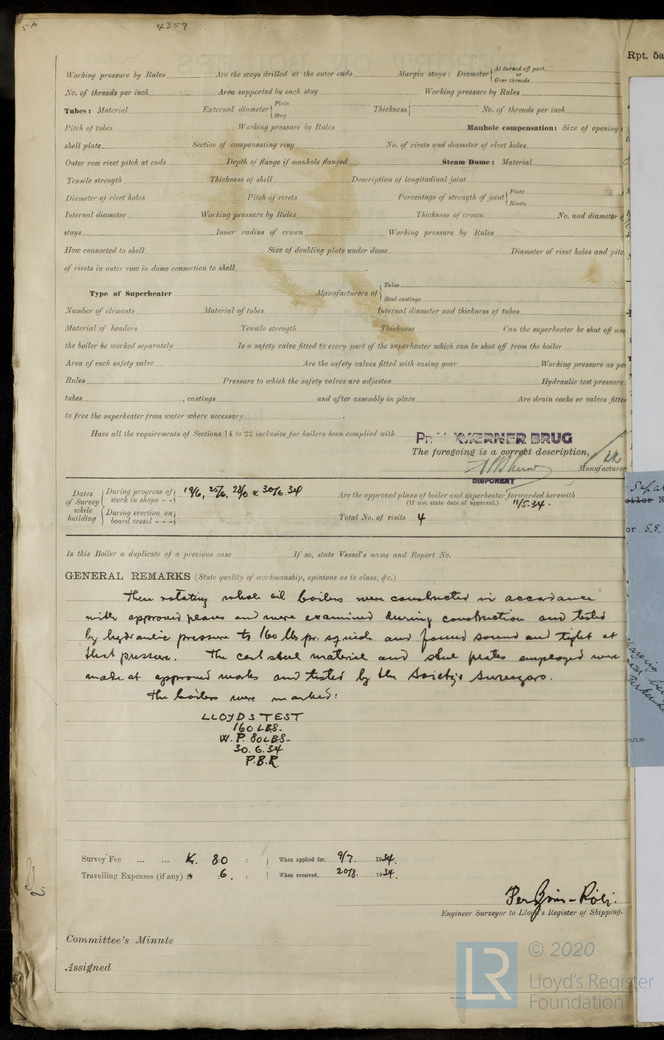 4359
Rpt. 5a
Working pressure by Rules Are the stays drilled at the outer ends Margin stays: Diameter { At turned off part, or Over threads
No. of threads per inch Area supported by each stay Working pressure by Rules
Tubes: Material External diameter { Plain Stay Thickness { No. of threads per inch
Pitch of tubes Working pressure by Rules Manhole compensation: Size of opening
shell plate Section of compensating ring No. of rivets and diameter of rivet holes
Outer row rivet pitch at ends Depth of flange if manhole flanged Steam Dome: Material
Tensile strength Thickness of shell Description of longitudinal joint
Diameter of rivet holes Pitch of rivets Percentage of strength of joint { Plate Rivets
Internal diameter Working pressure by Rules Thickness of crown No. and diameter
stays Inner radius of crown Working pressure by Rules
How connected to shell Size of doubling plate under dome Diameter of rivet holes and pitc
of rivets in outer row in dome connection to shell
Type of Superheater Manufacturers of { Tubes Steel castings
Number of elements Material of tubes Internal diameter and thickness of tubes
Material of headers Tensile strength Thickness Can the superheater be shut off and
the boiler be worked separately Is a safety valve fitted to every part of the superheater which can be shut off from the boiler
Area of each safety valve Are the safety valves fitted with easing gear Working pressure as per
Rules Pressure to which the safety valves are adjusted Hydraulic test pressure
tubes , castings and after assembly in place Are drain cocks or valves fitted
to free the superheater from water where necessary
Have all the requirements of Sections 14 to 22 inclusive for boilers been complied with
WERNER BRUG
The foregoing is a correct description,
Manufacturer
DISPONENT
Dates of Survey while building { During progress of work in shops - - } 19/6, 25/6, 28/6 & 30/6. 34 Are the approved plans of boiler and superheater forwarded herewith 11/5.34.
(If not state date of approval.)
{ During erection on board vessel - - - } Total No. of visits 4
Is this Boiler a duplicate of a previous case If so, state Vessel's name and Report No.
GENERAL REMARKS (State quality of workmanship, opinions as to class, &c.)
These rotating whale oil boilers were constructed in accordance
with approved plans and were examined during construction and tested
by hydraulic pressure to 160 lbs pr. sq inch and found sound and tight at
that pressure. The cast steel material and steel plates employed were
made at approved works and tested by the Society's Surveyors.
The boilers were marked:
LLOYDS TEST
160 LBS.
W.P. 80 LBS-
30.6.34
P.B.R
Survey Fee ... ... Kr. 80 : When applied for, 9/7. 1934.
Travelling Expenses (if any) 6. : When received, 20/8. 1934.
Engineer Surveyor to Lloyd's Register of Shipping.
Committee's Minute
Assigned
© 2020
LR
Lloyd's Register
Foundation